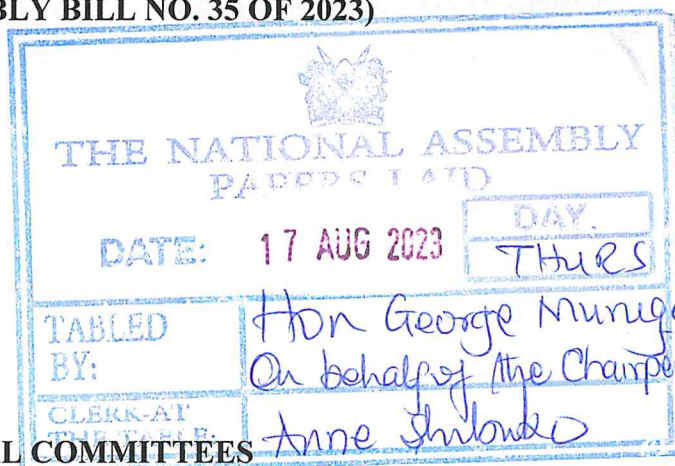 BLY BILL NO. 35 OF 2023)
THE NATIONAL ASSEMBLY
PAPERS LAID
DATE: 17 AUG 2023
DAY.
THURS
TABLED BY:
Hon George
On behalf of the Chairpe
CLERK-AT
THE TABLE:
Anne
L COMMITTEES